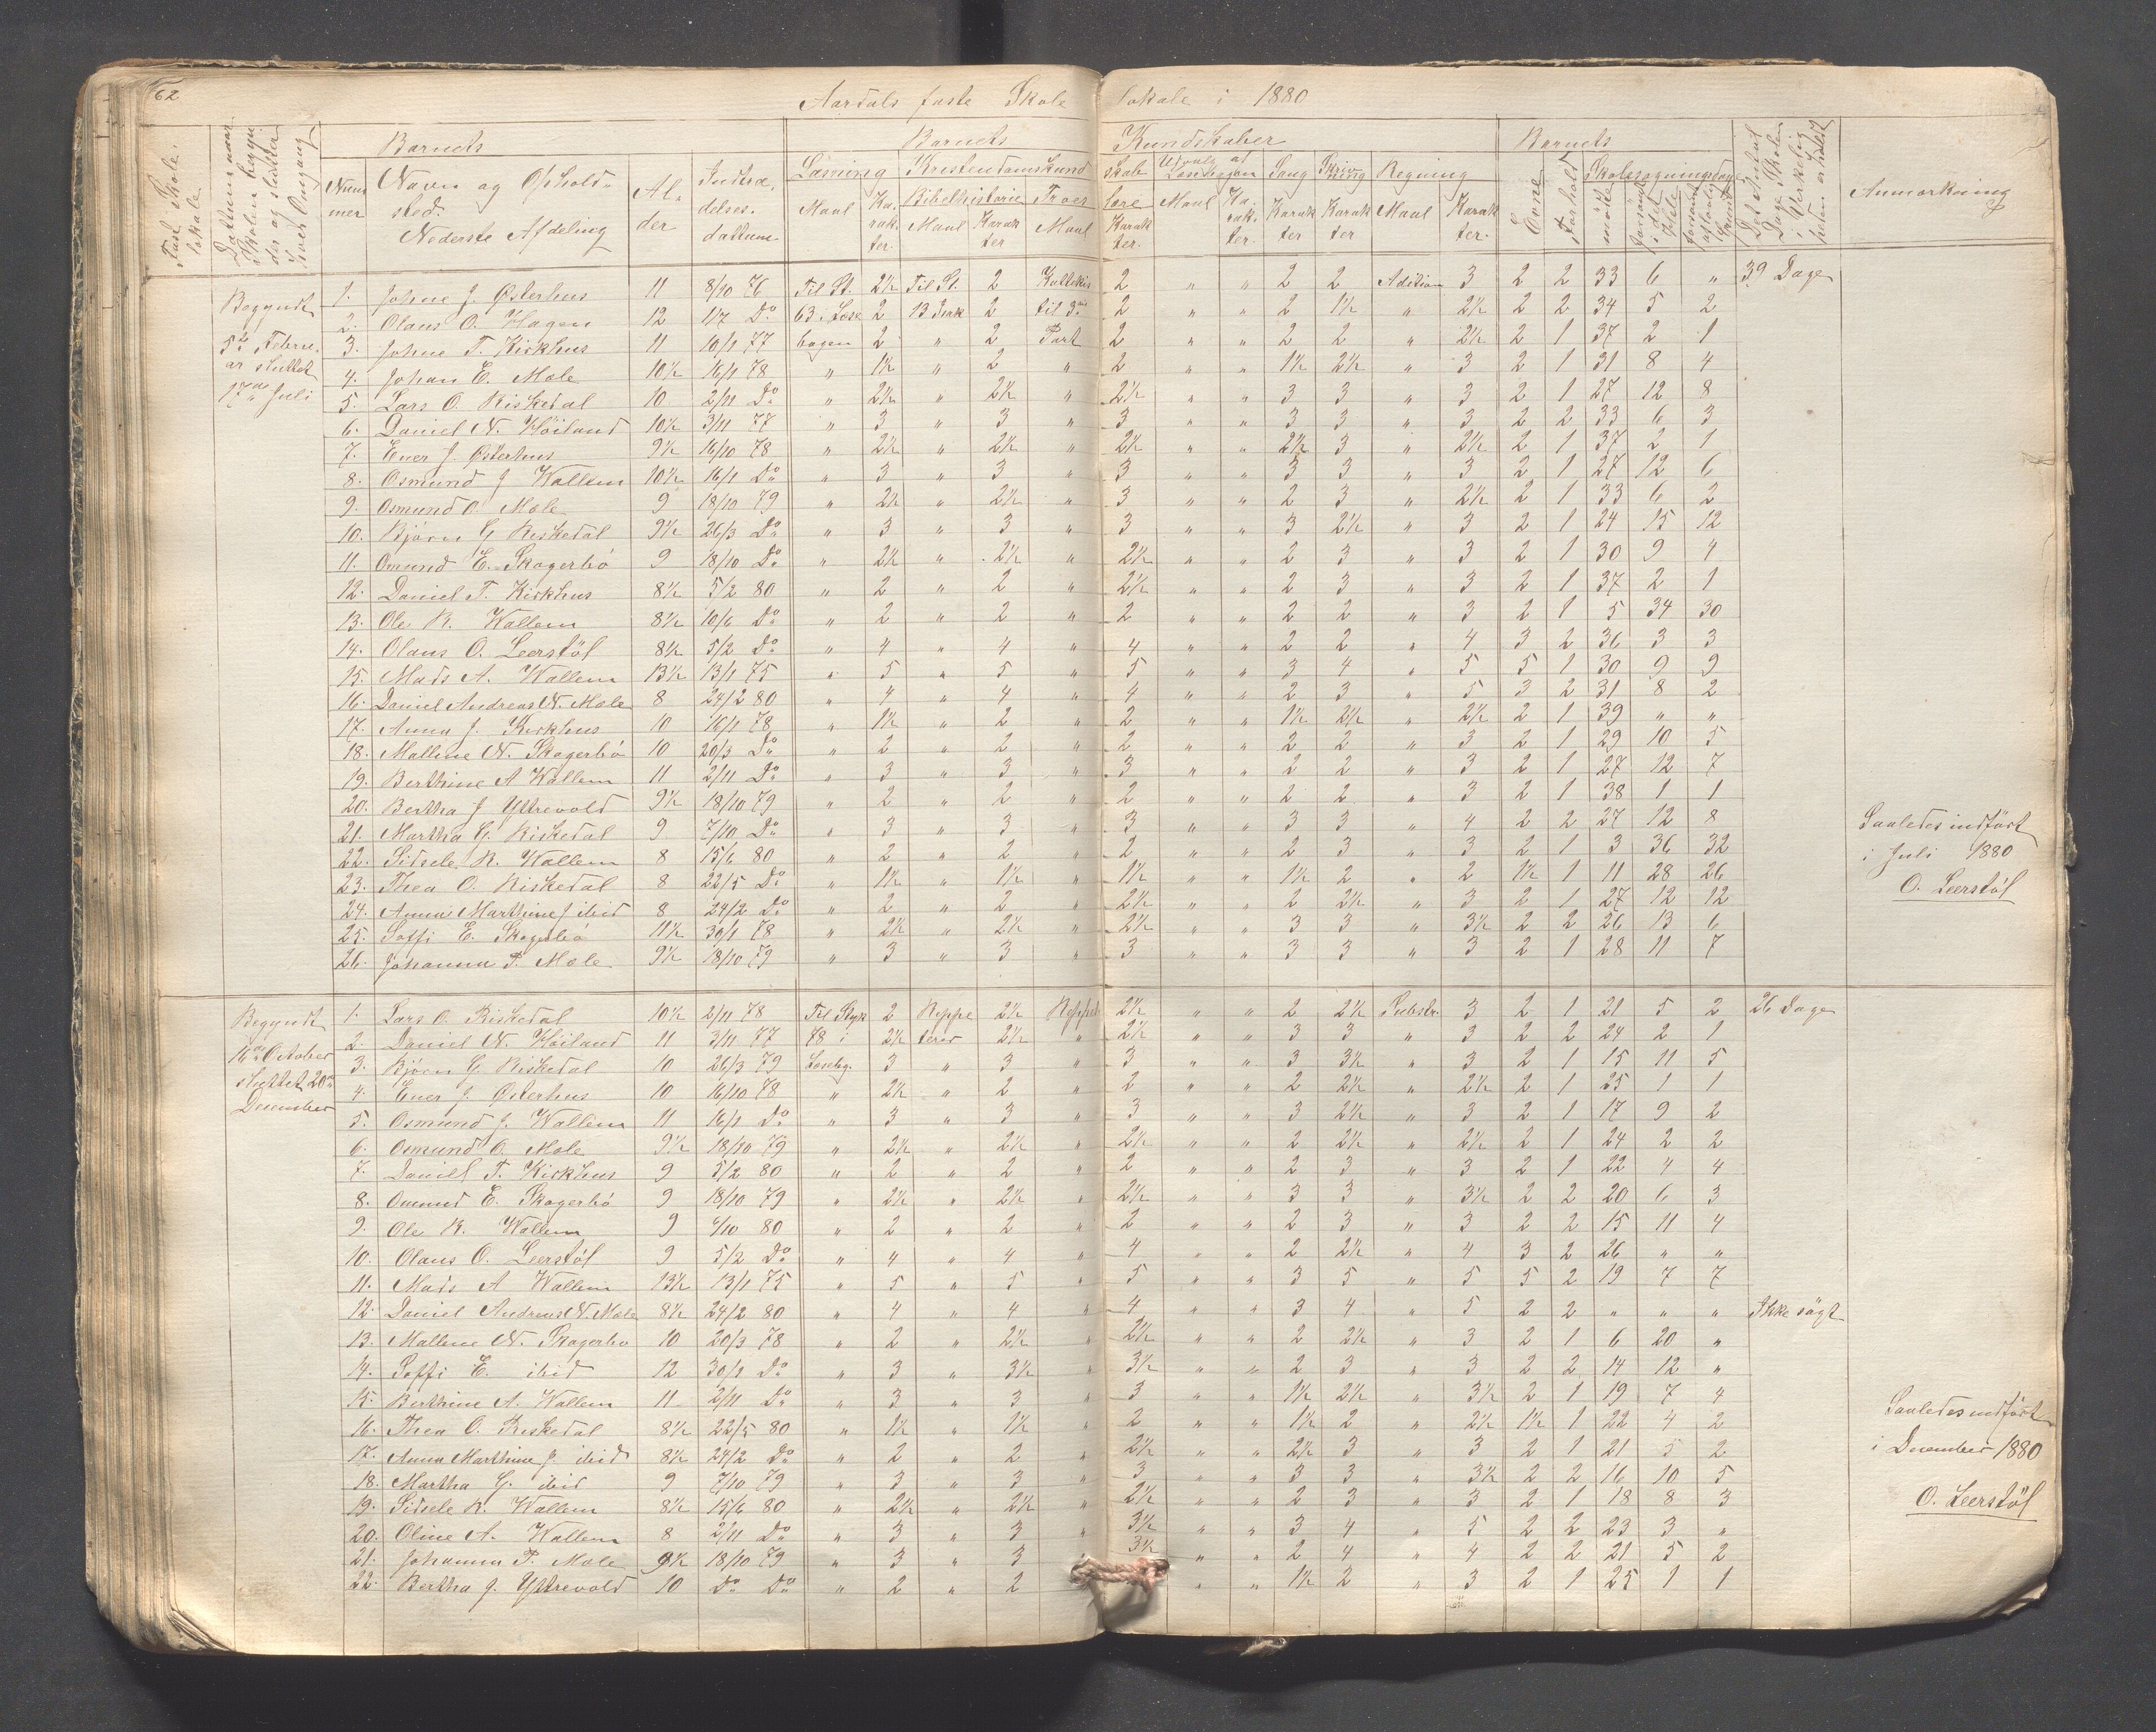 62
Aardals faste Skole lokale i 1880
Fast Skolelokale.
Datum naar Skolen begynder og slutter hver Omgang
Barnets
Nummer
Navn og Opholdssted.
Nederste Afdeling
Alder
Indtrædelsesdattum
Barnets Kundskaber
Læsning
Maal
Karakter.
Kristendomskundskab
Bibelhistorie
Maal
Karakter
Troeslære
Maal
Karakter.
Udvalg af Læsebogen
Maal
Karakter.
Sang
Karakter
Skrivning
Karakter
Regning
Maal
Karakter.
Barnets
Evne
Forhold
Skolesøgningsdage
mødte
forsømt i det Hele
forsømt af lovlig Grund
Det Antal Dage Skolen i Virkeligheden er holdt
Anmærkning
Begyndt 5te Februar sluttet 17de Juli
1. Johne J. Østerhus 11 8/10 76 Til St. 2½ Til St. 2 Kattekis 2 " " 2 2 Adition 3 2 2 33 6 " 39 Dage
2. Olaus O. Hagen 12 1/7 Do 63 i Læse 2 13 Perk 2 til 3die 2 " " 2 1½ " 2½ 2 2 34 5 2
3. Johne T. Kirkhus 11 10/1 77 bogen 2 " 2 Part 2 " " 2 2 " 2½ 2 1 37 2 1
4. Johan E. Mæle 10½ 16/1 78 " 1½ " 2 " 2 " " 1½ 2½ " 3 2 1 31 8 4
5. Lars O. Riskedal 10 2/11 Do " 2½ " 2½ " 2½ " " 3 3 " 3 2 1 27 12 8
6. Daniel N. Høiland 10½ 3/11 77 " 3 " 3 " 3 " " 3 3 " 3 2 2 33 6 3
7. Ener J. Østerhus 9½ 16/10 78 " 2½ " 2½ " 2½ " " 2½ 3 " 2½ 2 1 37 2 1
8. Osmund J Wallem 10½ 16/1 Do " 3 " 3 " 3 " " 3 3 " 3 2 1 27 12 6
9. Osmund O Mæle 9 18/10 79 " 2½ " 2½ " 3 " " 2 3 " 2½ 2 1 33 6 2
10. Bjørn G Riskedal 9½ 26/3 Do " 3 " 3 " 3 " " 3 2½ " 3 2 1 24 15 12
11. Omund E. Skogerbø 9 18/10 Do " 2½ " 2½ " 2½ " " 2 3 " 3 2 1 30 9 4
12. Daniel T. Kirkhus 8½ 5/2 80 " 2 " 2 " 2½ " " 2 3 " 3 2 1 37 2 1
13. Ole R. Wallem 8½ 10/6 Do " 2 " 2 " 2 " " 2 2 " 3 2 1 5 34 30
14. Olaus O. Leerstøl 8½ 5/2 Do " 4 " 4 " 4 " " 2 2 " 4 3 2 36 3 3
15. Mads A. Wallem 13½ 13/1 75 " 5 " 5 " 5 " " 3 4 " 5 5 1 30 9 9
16. Daniel Andreas N. Mæle 8 24/2 80 " 4 " 4 " 4 " " 2 3 " 5 3 2 31 8 2
17. Anna J. Kirkhus 10 16/1 78 " 1½ " 2 " 2 " " 1½ 2½ " 2½ 2 1 39 " "
18. Mallene N. Skogerbø 10 20/3 Do " 2 " 2 " 2 " " 2 2 " 3 2 1 29 10 5
19. Berthine A Wallem 11 2/11 Do " 3 " 3 " 3 " " 2 2 " 3 2 1 27 12 7
20. Bertha J Yttrevold 9½ 18/10 79 " 2 " 2 " 2 " " 2 2 " 3 2 1 38 1 1
21. Martha G. Riskedal 9 7/10 Do " 3 " 3 " 3 " " 3 3 " 4 2 2 27 12 8
22. Sidsele R. Wallem 8 15/6 80 " 2 " 2 " 2 " " 2 3 " 3 2 1 3 36 32
23. Thea O. Riskedal 8 22/5 Do " 1½ " 1½ " 1½ " " 1½ 2 " 2 1½ 1 11 28 26
24. Anna Marthine J ibid 8 24/2 Do " 2 " 2 " 2½ " " 2 2½ " 3 2 1 27 12 12
25. Soffi E. Skogerbø 11½ 30/1 78 " 2½ " 2½ " 2½ " " 3 3 " 3½ 2 2 26 13 6
26. Johanna P. Mæle 9½ 18/10 79 " 3 " 3 " 3 " " 3 3 " 3 2 1 28 11 7
Saaledes indført
i Juli 1880
O. Leerstøl
Begyndt 16de October sluttet 20de December
1. Lars O. Riskedal 10½ 2/11 78 Til Styk 2 Reppe 2½ Reppet 2½ " " 2 2½ Substr. 3 2 1 21 5 2 26 Dage
2. Daniel N. Høiland 11 3/11 77 78 i 2½ terer 2½ " 2½ " " 3 3 " 3 2 2 24 2 1
3. Bjørn G. Riskedal 10 26/3 79 Læsebg. 3 " 3 " 3 " " 3 3½ " 3 2 1 15 11 5
4. Ener J. Østerhus 10 16/10 78 " 2½ " 2 " 2 " " 2 2½ " 2½ 2 1 25 1 1
5. Osmund J. Wallem 11 16/1 Do " 3 " 3 " 3 " " 3 2½ " 3 2 1 17 9 2
6. Osmund O. Mæle 9½ 18/10 79 " 2½ " 2½ " 2½ " " 2 2½ " 2½ 2 1 24 2 2
7. Daniel T. Kirkhus 9 5/2 80 " 2 " 2 " 2 " " 2 3 " 3 2 1 22 4 4
8. Omund E. Skogerbø 9 18/10 79 " 2½ " 2½ " 2½ " " 3 3 " 3½ 2 2 20 6 3
9. Ole R. Wallem 9 6/10 80 " 2 " 2 " 2 " " 2 3 " 3 2 2 15 11 4
10. Olaus O. Leerstøl 9 5/2 Do " 4 " 4 " 4 " " 2 2½ " 4 3 2 26 " "
11. Mads A Wallem 13½ 13/1 75 " 5 " 5 " 5 " " 3 5 " 5 5 2 19 7 7
12. Daniel Andreas N. Mæle 8½ 24/2 80 " 4 " 4 " 4 " " 3 4 " 5 2 2 " " " Ikke søgt
13. Mallene N. Skogerbø 10 20/3 78 " 2 " 2½ " 2½ " " 2 2½ " 3 2 1 6 20 "
14. Soffi E. ibid 12 30/1 Do " 3 " 3½ " 3½ " " 2 3 " 3 2 2 14 12 "
15. Berthine A. Wallem 11 2/11 Do " 3 " 3 " 3 " " 1½ 2½ " 3½ 2 1 19 7 4
16. Thea O. Riskedal 8½ 22/5 80 " 1½ " 1½ " 2 " " 1½ 2 " 2½ 1½ 1 22 4 2
17. Anna Marthine J. ibid 8½ 24/2 Do " 2 " 2 " 2½ " " 2½ 3 " 3 2 1 21 5 2
18. Martha G. ibid 9 7/10 79 " 3 " 3 " 3 " " 3 3 " 3½ 2 2 16 10 5
19. Sidsele R. Wallem 8½ 15/6 80 " 2½ " 2½ " 2½ " " 2 3 " 3 2 1 18 8 3
20. Oline A. Wallem 8 2/11 Do " 3 " 3 " 3½ " " 3 4 " 5 2 2 23 3 "
21. Johanna P. Mæle 9½ 18/10 79 " 3 " 3 " 3½ " " 2 4 " 4 2 2 21 5 2
22. Bertha J. Yttrevold 10 Do Do " 2 " 2 " " 1½ 2 " 3 2 1 25 1 1
Saaledes indført
i December 1880
O. Leerstøl